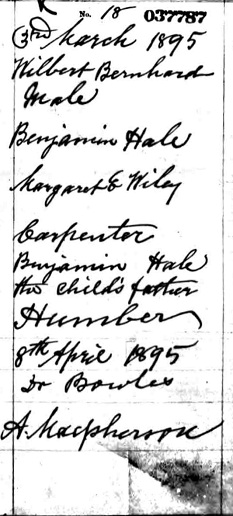 No. 18 037787
3rd March 1895
Wilbert Bernhard
Male
Benjamin Hale
Margaret E Wiley
Carpenter
Benjamin Hale
the child's father
Humber
8th April 1895
Dr Bowles
A. Macpherson